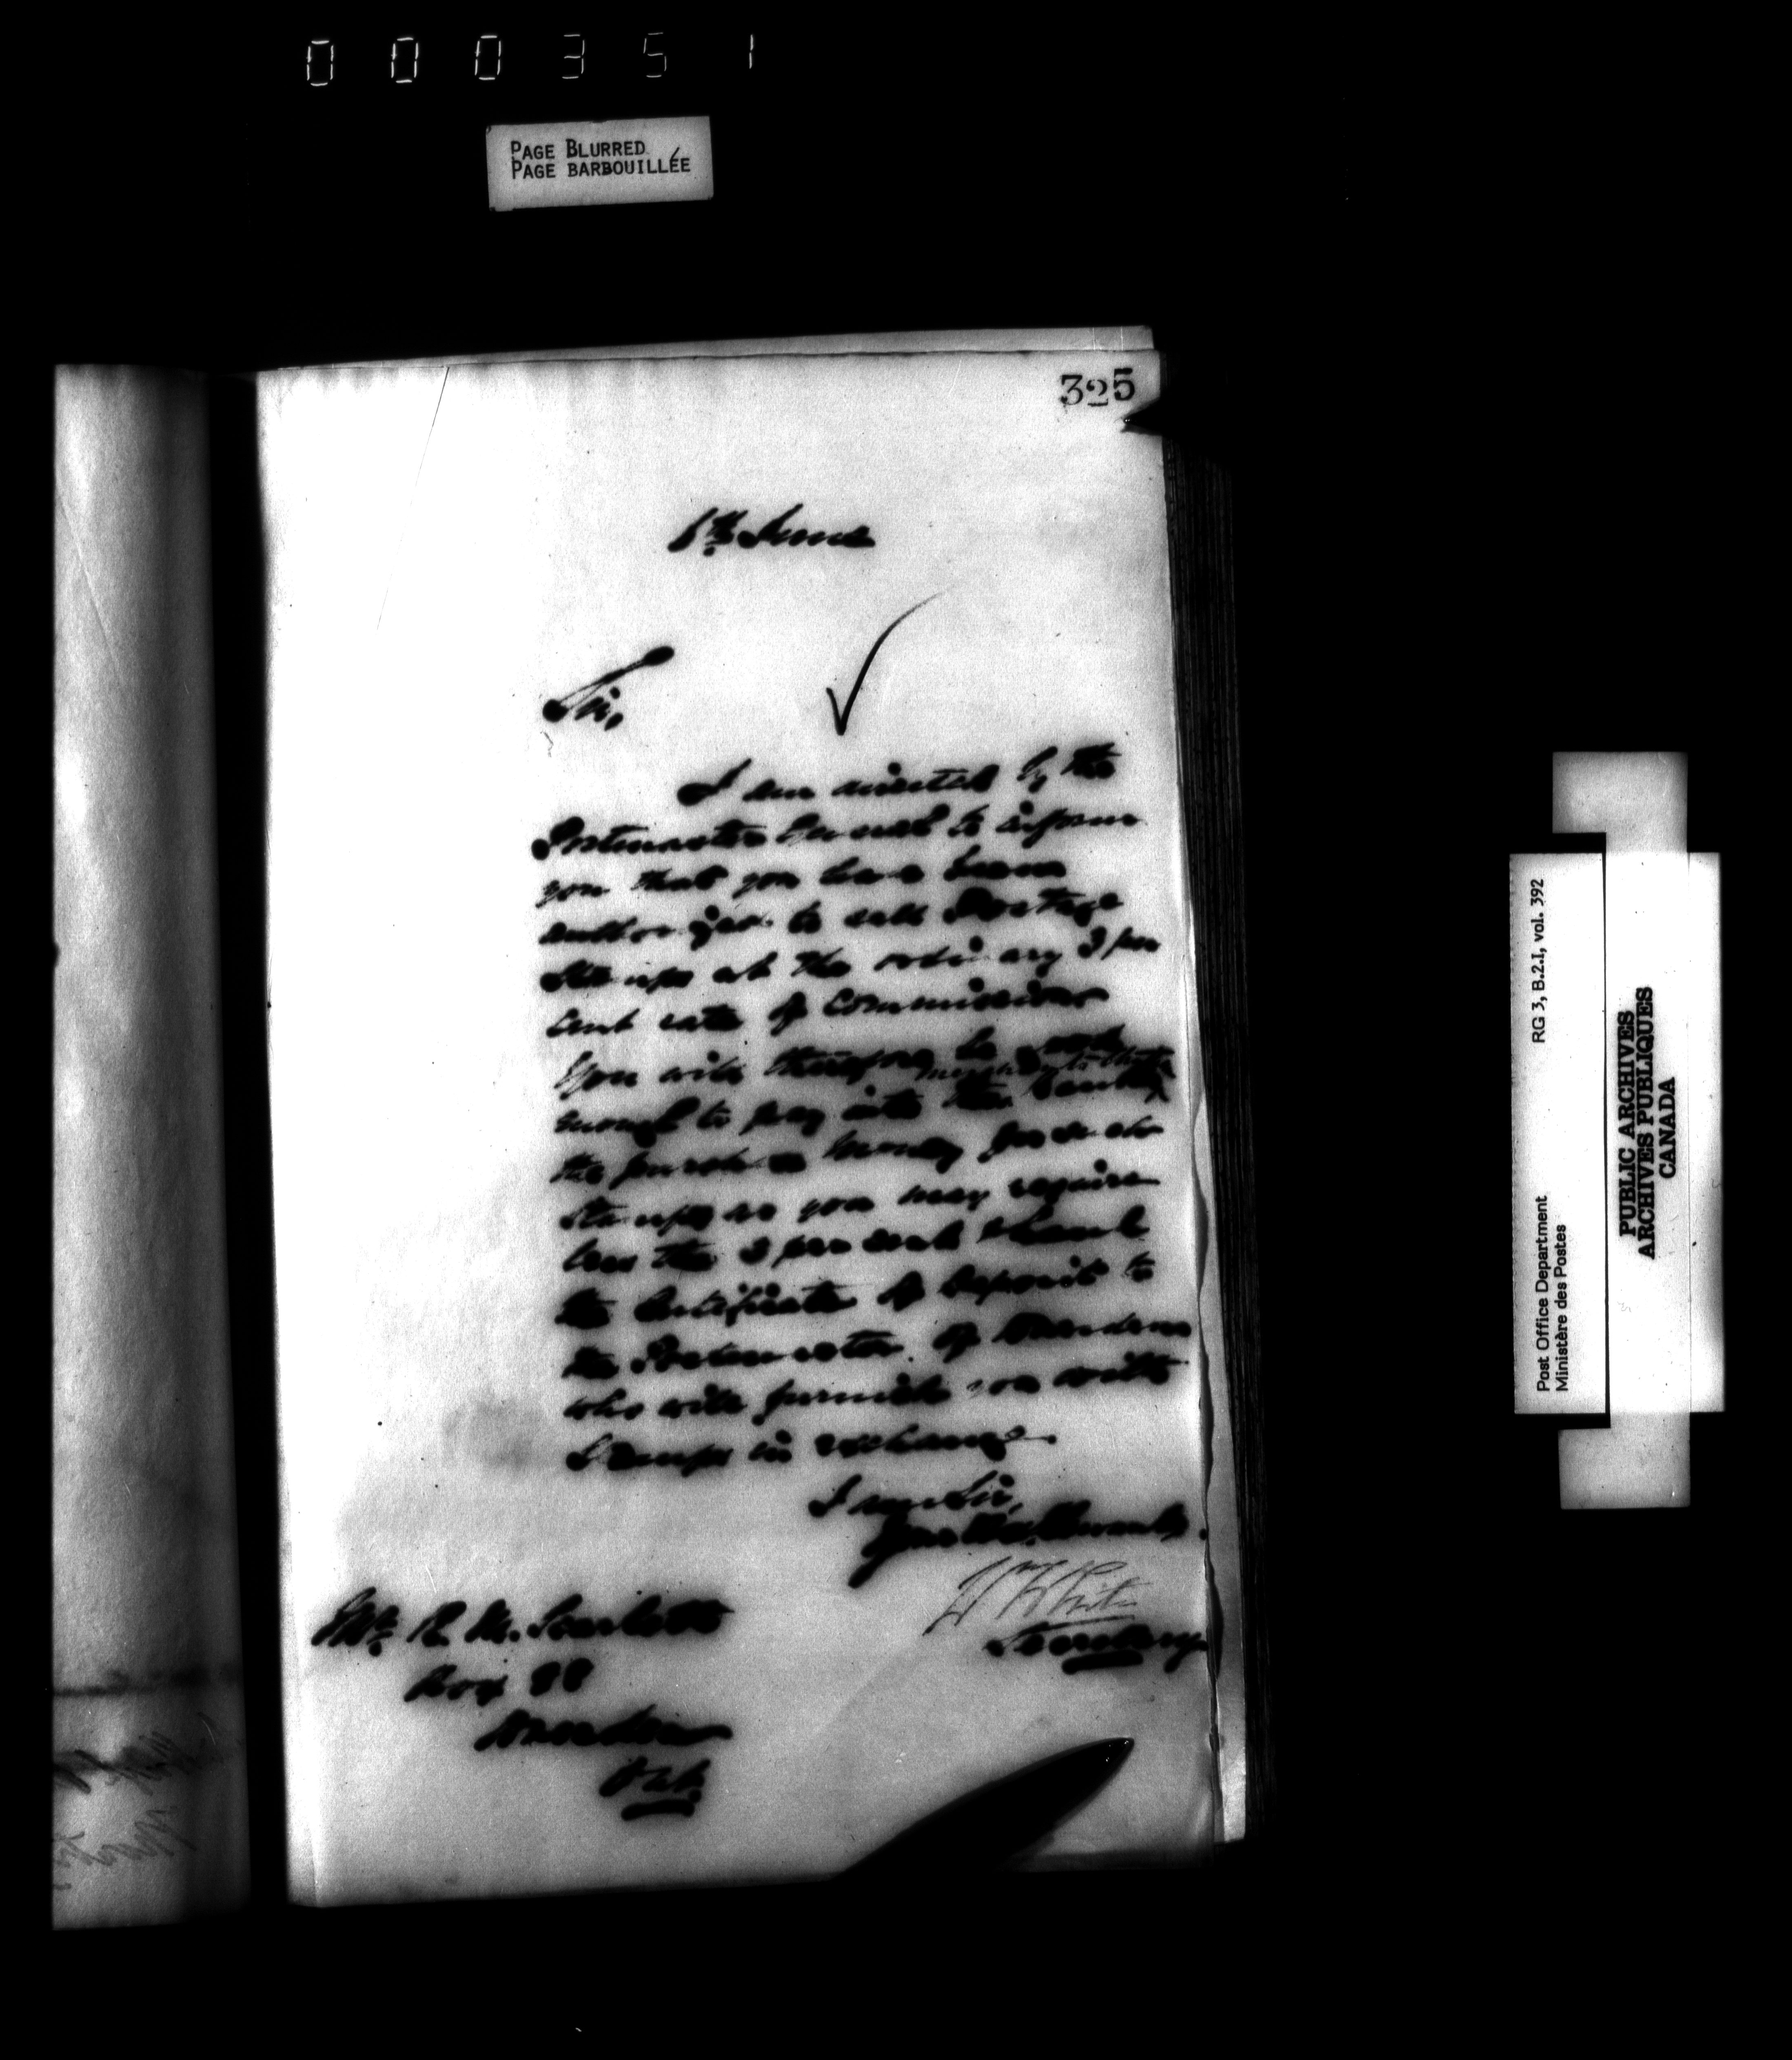 000351
PAGE BLURRED
PAGE BARBOUILLÉE
325
6th June
Sir,
I am directed by the
Postmaster General to inform
you that you have been
authorized to sell Postage
Stamps at the ordinary 3 per
cent rate of Commission
You will therefore be good
enough to pay into the Bank
the purchase money for such
stamps as you may require
less the 3 per cent & hand
the Certificate of Deposit to
the Postmaster of
who will furnish you with
Stamps in exchange.
I am Sir,
Your Obt. Servant,
W White
Secretary
Mr. R. M. Scarlett
Box 88
Ont.
RG 3, B.2.I, vol. 392
Post Office Department
Ministère des Postes
PUBLIC ARCHIVES
ARCHIVES PUBLIQUES
CANADA